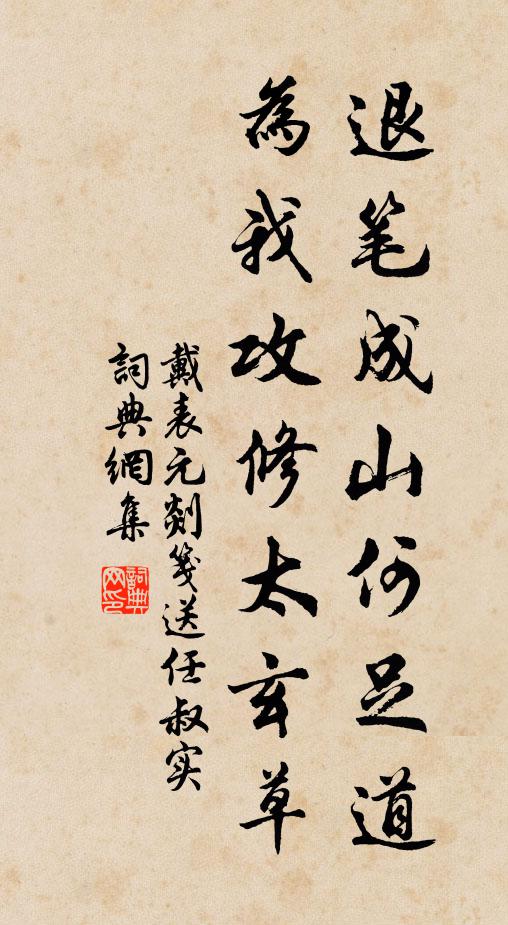 退笔成山何足道
為我攻修太玄草
戴表元剡箋送任叔实
詞典網集
詞典网印